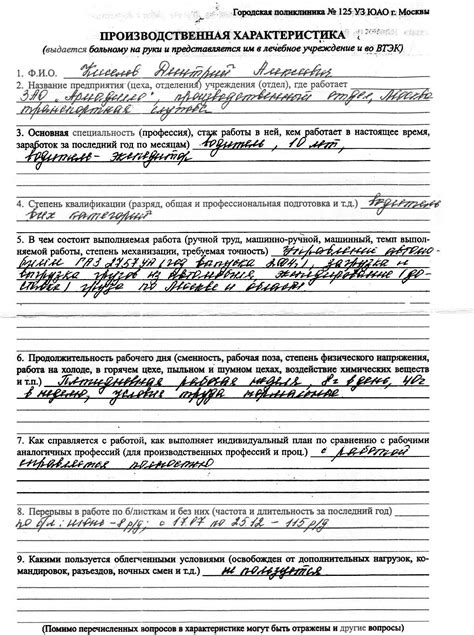 Городская поликлиника № 125 УЗ ЮАО г. Москвы
ПРОИЗВОДСТВЕННАЯ ХАРАКТЕРИСТИКА
(выдается больному на руки и представляется им в лечебное учреждение и во ВТЭК)
1. Ф.И.О. Киселов Дмитрий Алексеевич
2. Название предприятия (цеха, отделения) учреждения (отдел), где работает
ЗАО производственной отдел,
транспортная служба
3. Основная специальность (профессия), стаж работы в ней, кем работает в настоящее время,
заработок за последний год по месяцам) водитель, 10 лет,
водитель-экспедитор
4. Степень квалификации (разряд, общая и профессиональная подготовка и т.д.) водитель
всех категорий
5. В чем состоит выполняемая работа (ручной труд, машинно-ручной, машинный, темп выпол-
няемой работы, степень механизации, требуемая точность) управление автомо-
билем ГАЗ (год выпуска 2004), загрузка и
отгрузка грузов из автомобиля, экспедирование (до-
ставка) груза по Москве и области
6. Продолжительность рабочего дня (сменность, рабочая поза, степень физического напряжения,
работа на холоде, в горячем цехе, пыльном и шумном цехах, воздействие химических веществ
и т.п.) Пятидневная рабочая неделя, 8 ч в день, 40 ч
в неделю, условия труда нормальные
7. Как справляется с работой, как выполняет индивидуальный план по сравнению с рабочими
аналогичных профессий (для производственных профессий и проц.) с работой
справляется полностью
8. Перерывы в работе по б/листкам и без них (частота и длительность за последний год)
по б/л: июнь - 8 р/д; с 17.07 по 25.12 - 115 р/д
9. Какими пользуется облегченными условиями (освобожден от дополнительных нагрузок, ко-
мандировок, разъездов, ночных смен и т.д.) не пользуется
(Помимо перечисленных вопросов в характеристике могут быть отражены и другие вопросы)